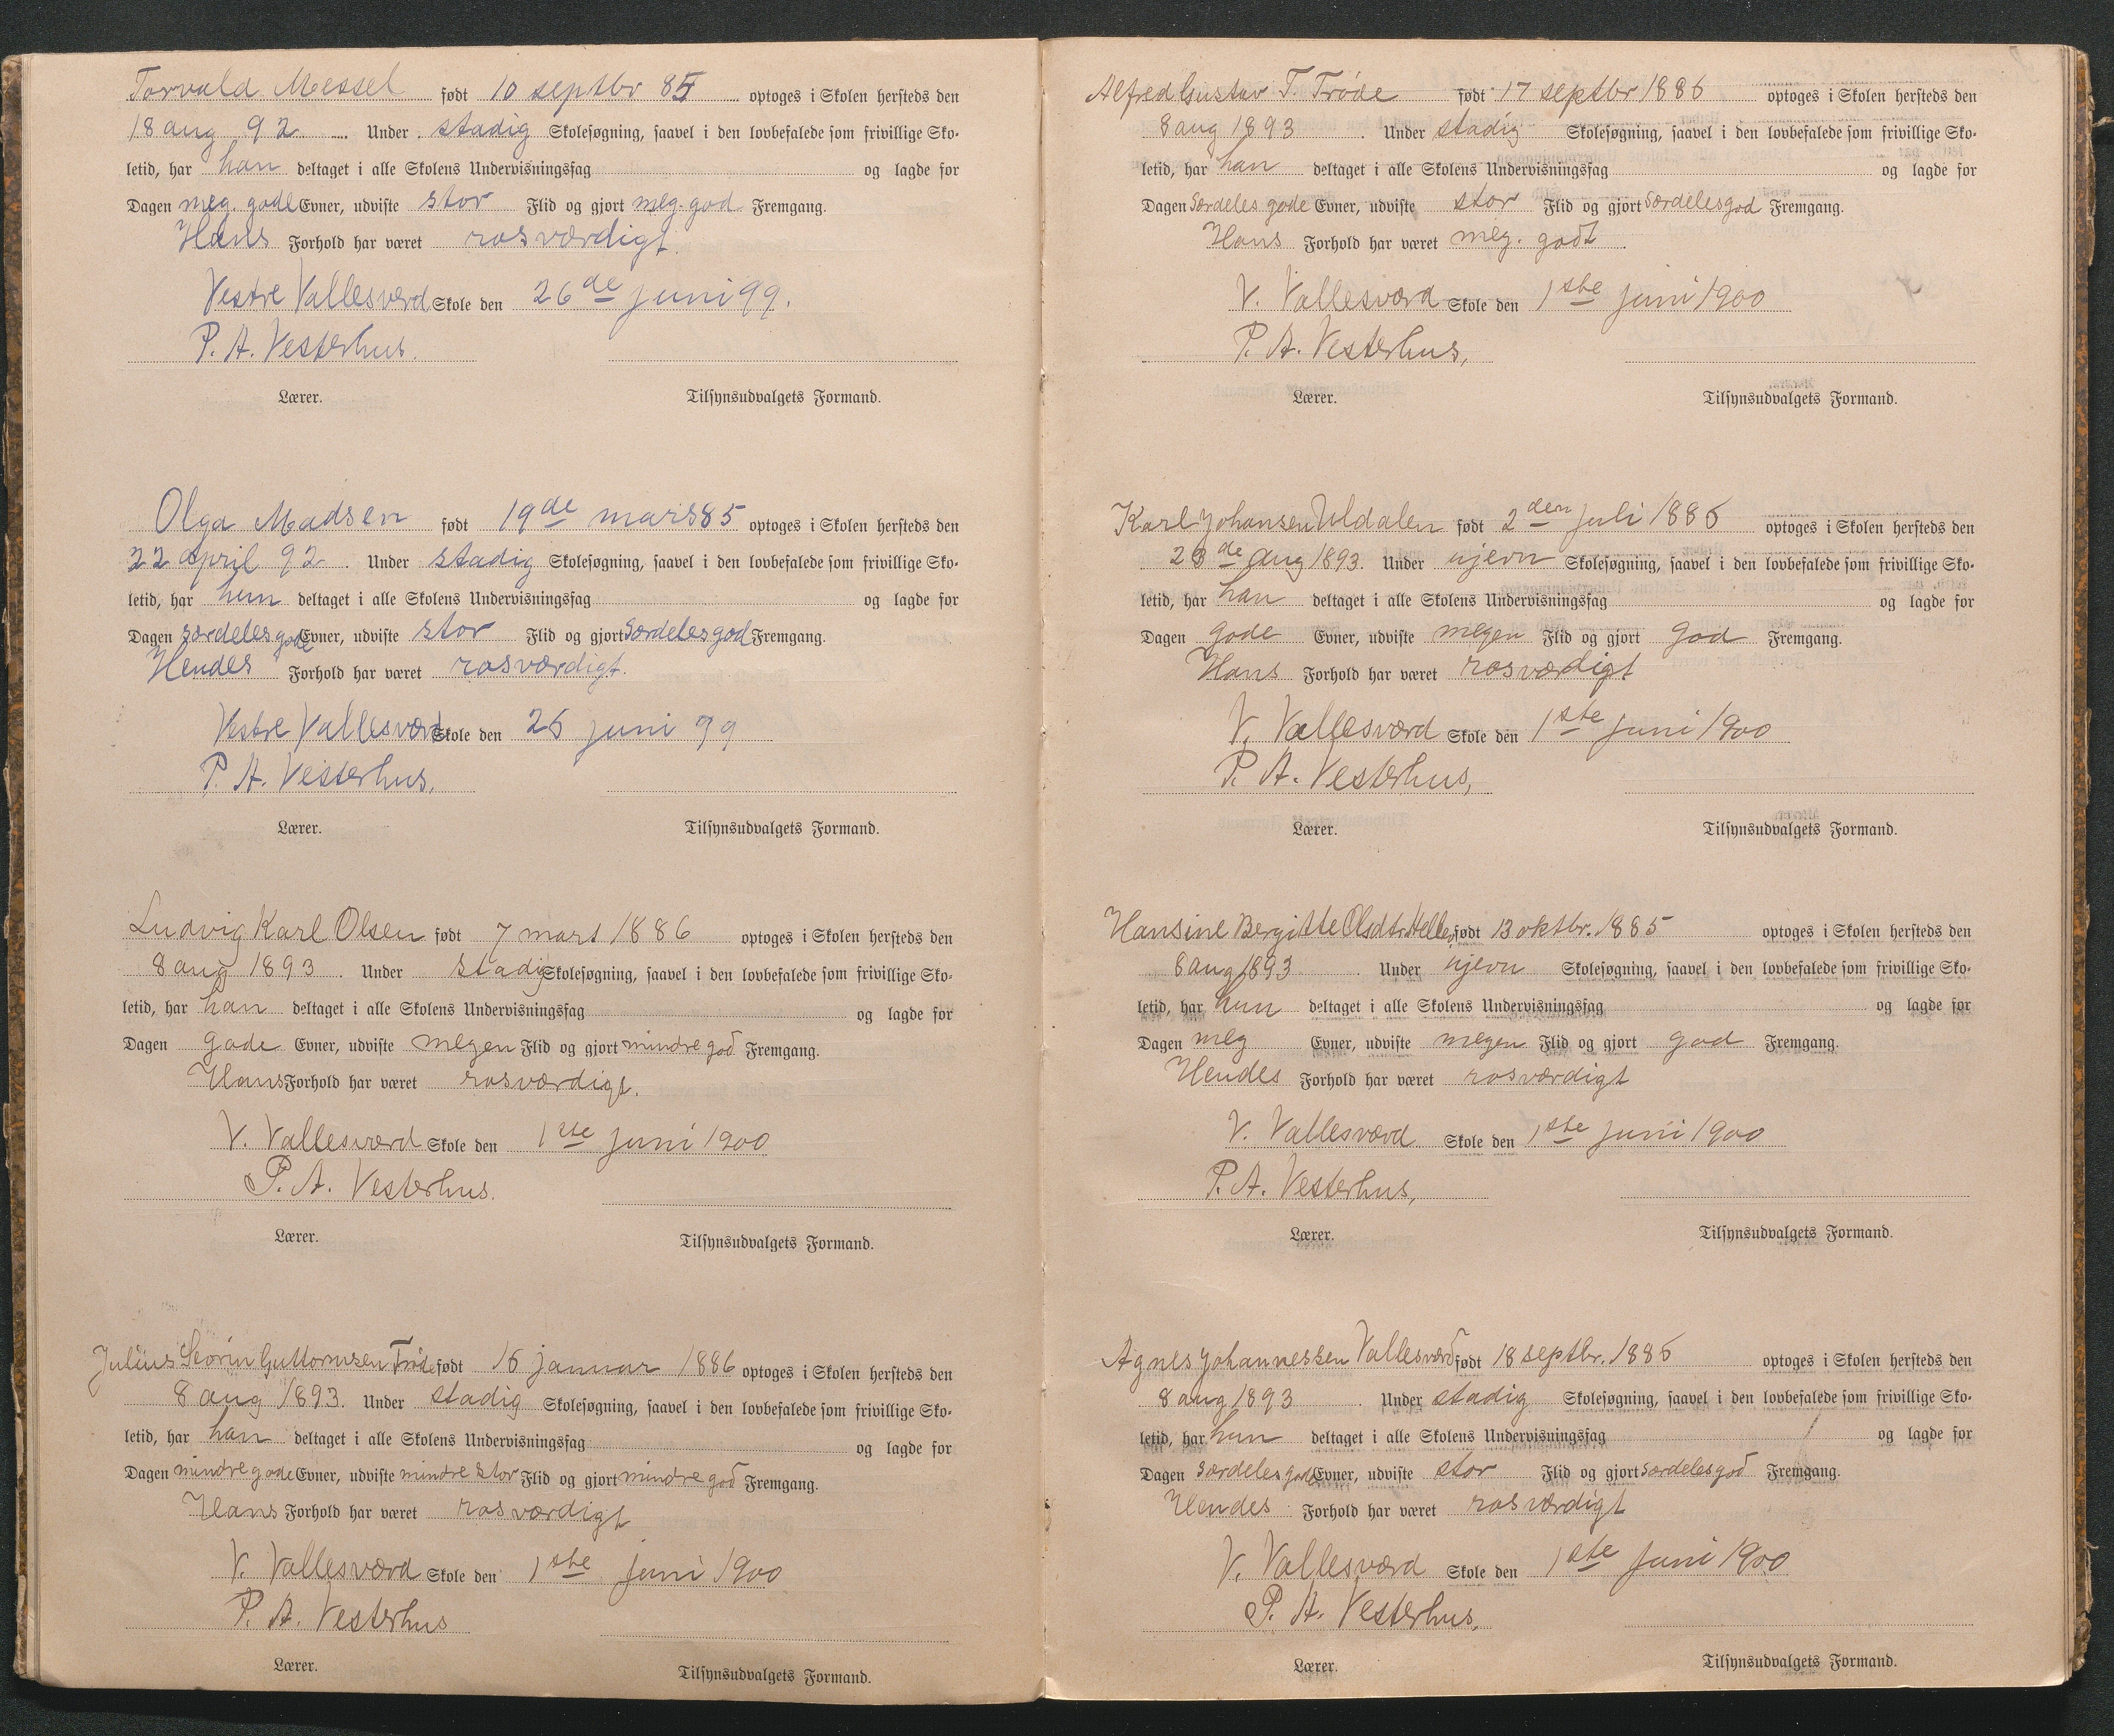 Torvald Messel født 10 septbr 85 optoges i Skolen hersteds den
18 aug 92 Under stadig Skolesøgning, saavel i den lovbefalede som frivillige Sko-
letid, har han deltaget i alle Skolens Undervisningsfag og lagde for
Dagen meg. gode Evner, udviste stor Flid og gjort meg. god Fremgang.
Hans Forhold har været rosværdigt.
Vestre Vallesværd Skole den 26de juni 99.
P. A. Vesterhus.
Lærer. Tilsynsudvalgets Formand.
Olga Madsen født 19de mars 85 optoges i Skolen hersteds den
22 april 92. Under stadig Skolesøgning, saavel i den lovbefalede som frivillige Sko-
letid, har hun deltaget i alle Skolens Undervisningsfag og lagde for
Dagen særdeles gode Evner, udviste stor Flid og gjort Særdeles god Fremgang.
Hendes Forhold har været rosværdigt.
Vestre Vallesværd Skole den 26 juni 99
P. A. Vesterhus.
Lærer. Tilsynsudvalgets Formand.
Ludvig Karl Olsen født 7 mars 1886 optoges i Skolen hersteds den
8 aug 1893. Under stadig Skolesøgning, saavel i den lovbefalede som frivillige Sko-
letid, har han deltaget i alle Skolens Undervisningsfag og lagde for
Dagen gode Evner, udviste megen Flid og gjort mindre god Fremgang.
Hans Forhold har været rosværdigt.
V. Vallesværd Skole den 1ste juni 1900
P. A. Vesterhus.
Lærer. Tilsynsudvalgets Formand.
Julius Severin Guttormsen Trøde født 16 januar 1886 optoges i Skolen hersteds den
8 aug 1893. Under stadig Skolesøgning, saavel i den lovbefalede som frivillige Sko-
letid, har han deltaget i alle Skolens Undervisningsfag og lagde for
Dagen mindre gode Evner, udviste mindre stor Flid og gjort mindre god Fremgang.
Hans Forhold har været rosværdigt
V. Vallesværd Skole den 1ste juni 1900
P. A. Vesterhus
Lærer. Tilsynsudvalgets Formand.
Alfred Gustav T. Trøde født 17 septbr 1886 optoges i Skolen hersteds den
8 aug 1893. Under stadig Skolesøgning, saavel i den lovbefalede som frivillige Sko-
letid, har han deltaget i alle Skolens Undervisningsfag og lagde for
Dagen Særdeles gode Evner, udviste stor Flid og gjort Særdeles god Fremgang.
Hans Forhold har været meg. godt.
V. Vallesværd Skole den 1ste juni 1900
P. A. Vesterhus,
Lærer. Tilsynsudvalgets Formand.
Karl Johansen Uldalen født 2den juli 1886 optoges i Skolen hersteds den
de aug 1893. Under ujevn Skolesøgning, saavel i den lovbefalede som frivillige Sko-
letid, har han deltaget i alle Skolens Undervisningsfag og lagde for
Dagen gode Evner, udviste megen Flid og gjort god Fremgang.
Hans Forhold har været rosværdigt
V. Vallesværd Skole den 1ste juni 1900
P. A. Vesterhus,
Lærer. Tilsynsudvalgets Formand.
Hansine Bergitte Olsdtr. født 13 oktbr. 1885 optoges i Skolen hersteds den
8 aug 1893. Under ujevn Skolesøgning, saavel i den lovbefalede som frivillige Sko-
letid, har hun deltaget i alle Skolens Undervisningsfag og lagde for
Dagen meg Evner, udviste megen Flid og gjort god Fremgang.
Hendes Forhold har været rosværdigt
V. Vallesværd Skole den 1ste juni 1900
P. A. Vesterhus,
Lærer. Tilsynsudvalgets Formand.
Agnes Johannessen Vallesværd født 18 septbr. 1886 optoges i Skolen hersteds den
8 aug 1893. Under stadig Skolesøgning, saavel i den lovbefalede som frivillige Sko-
letid, har hun deltaget i alle Skolens Undervisningsfag og lagde for
Dagen særdeles gode Evner, udviste stor Flid og gjort Særdeles god Fremgang.
Hendes Forhold har været rosværdigt
V. Vallesværd Skole den 1ste juni 1900
P. A. Vesterhus,
Lærer. Tilsynsudvalgets Formand.